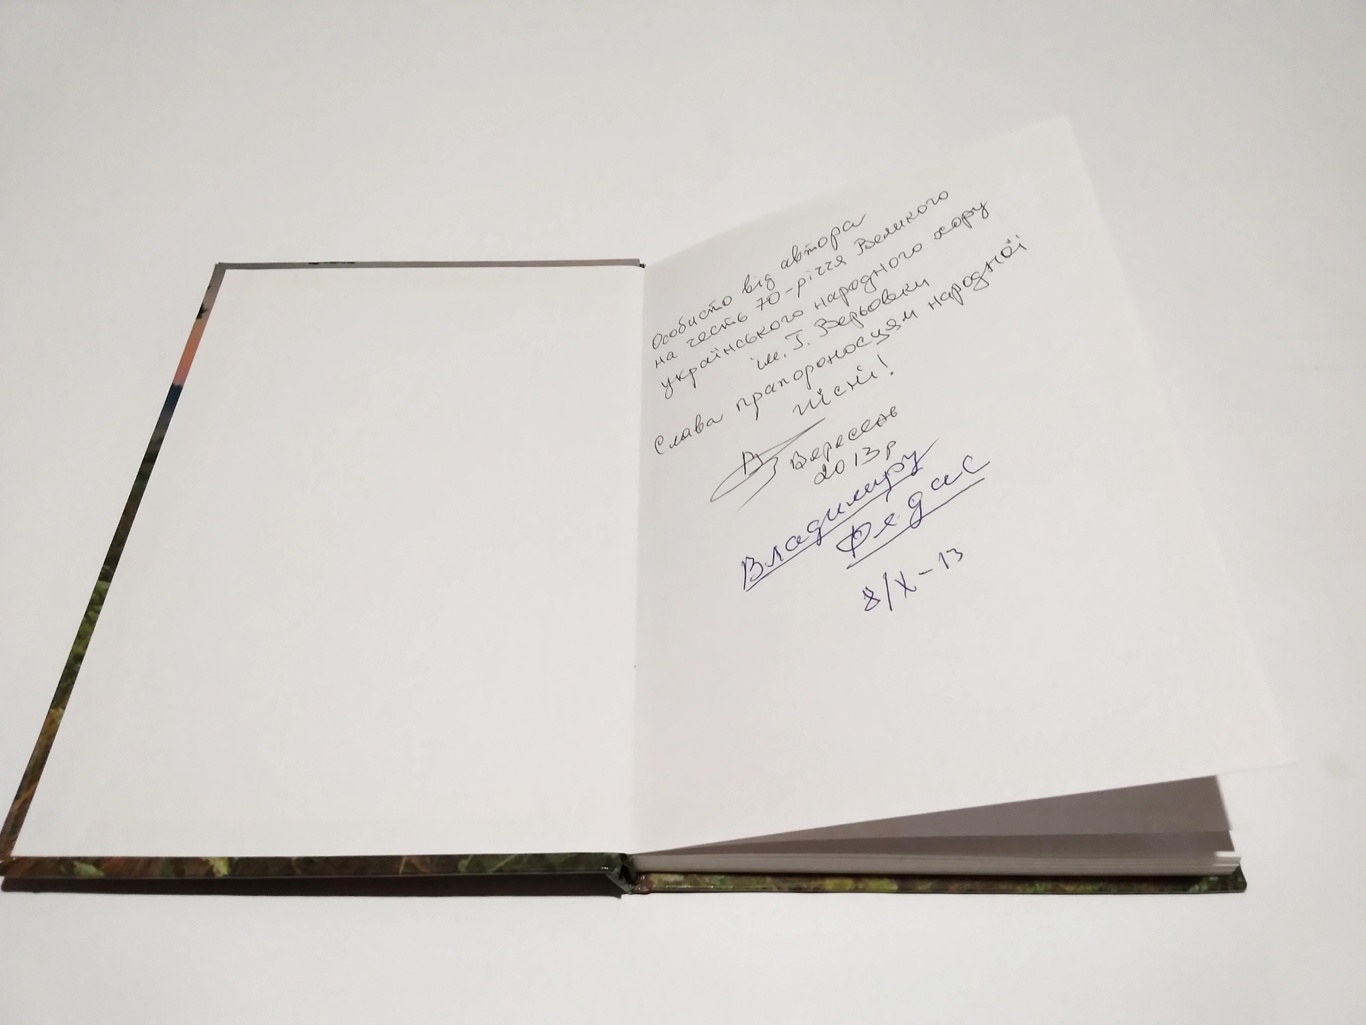 Особисто від автора
на честь 70-річчя Великого
українського народного хору
ім. Г. Верьовки
Слава прапороносцям народної
пісні!
Вересень
2013р
Владимиру
Федас
8/X-13